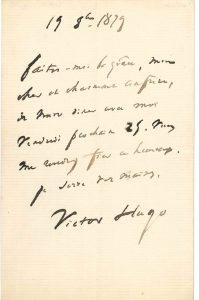 19 8bre 1879
faites-moi la grâce, mon
cher et charmant confrère,
de venir dîner avec moi
Vendredi prochain 25. Vous
me rendrez fier et heureux.
je serre vos mains.
Victor Hugo